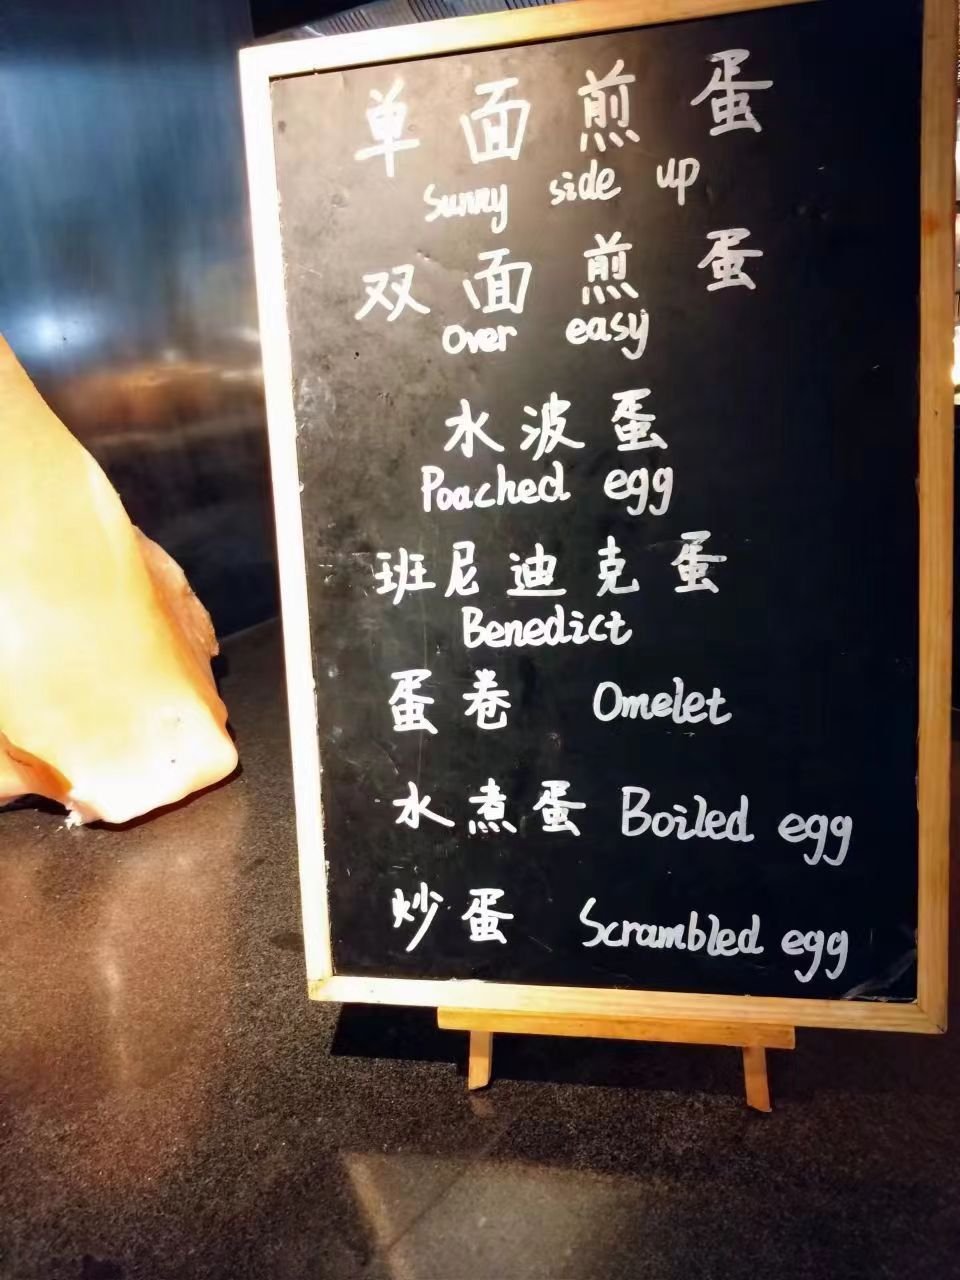 单面煎蛋
Sunny side up
双面煎蛋
Over easy
水波蛋
Poached egg
班尼迪克蛋
Benedict
蛋卷 Omelet
水煮蛋 Boiled egg
炒蛋 Scrambled egg